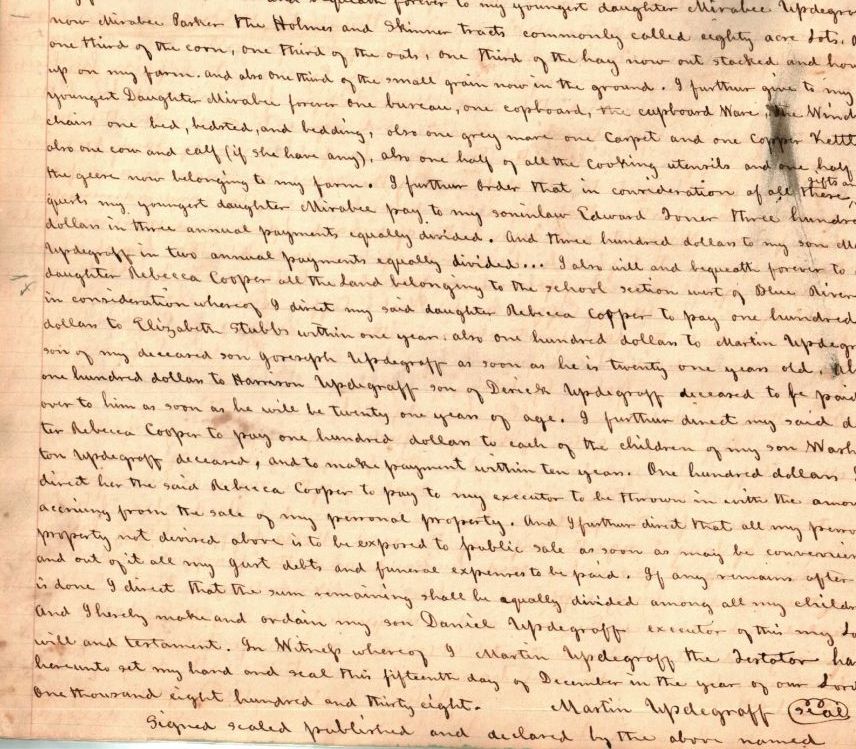 and bequeath forever to my youngest daughter Mirabee Updegro
now Mirabee Parker the Holmes and Skinner tracts commonly called eighty acre Lots,
one third of the corn, one third of the oats, one third of the hay now out stacked and hou
up on my farm. and also one third of the small grain now in the ground. I further give to my
youngest Daughter Mirabee forever one bureau, one copboard, the cupboard Ware, Wind
chairs one bed, bedsted, and bedding, also one grey mare one Carpet and one Copper Kettl
also one cow and calf (if she have any), also one half of all the Cooking utensils and one half
the geese now belonging to my farm. I further Order that in consideration of all these gifts an
quests my youngest daughter Mirabee pay to my soninlaw Edward Joner three hundre
dollars in three annual payments equally divided. And three hundred dollars to my son Ma
Updegraff in two annual payments equally divided... I also will and bequeath forever to
daughter Rebecca Cooper all the Land belonging to the school section west of Blue River
in consideration whereof I direct my said daughter Rebecca Copper to pay one hundred
dollars to Elizabeth Stubbs within one year: also one hundred dollars to Martin Updegr
son of my deceased son Updegraff as soon as he is twenty one years old, al
one hundred dollars to Harrison Updegraff son of Derick Updegroff deceased to be paid
over to him as soon as he will be twenty one years of age. I further direct my said d
ter Rebecca Cooper to pay one hundred dollars to each of the children of my son Wash
ton Updegroff deceased, and to make payment within ten years. One hundred dollars I
direct her the said Rebecca Cooper to pay to my executor to be thrown in with the amou
accruing from the sale of my personal property. And I further direct that all my perso
property not devised above is to be exposed to public sale as soon as may be convenien
and out of it all my just debts and funeral expenses to be paid. If any remains after
is done I direct that the sum remaining shall be equally divided among all my childr
And I hereby make and ordain my son Daniel Updegroff executor of this my La
will and testament. In Witness whereof I Martin Updegroff the Testator ha
hereunto set my hand and seal this fifteenth day of December in the year of our Lord
One thousand eight hundred and thirty eight. Martin Updegraff seal
Signed sealed published and declared by the above named